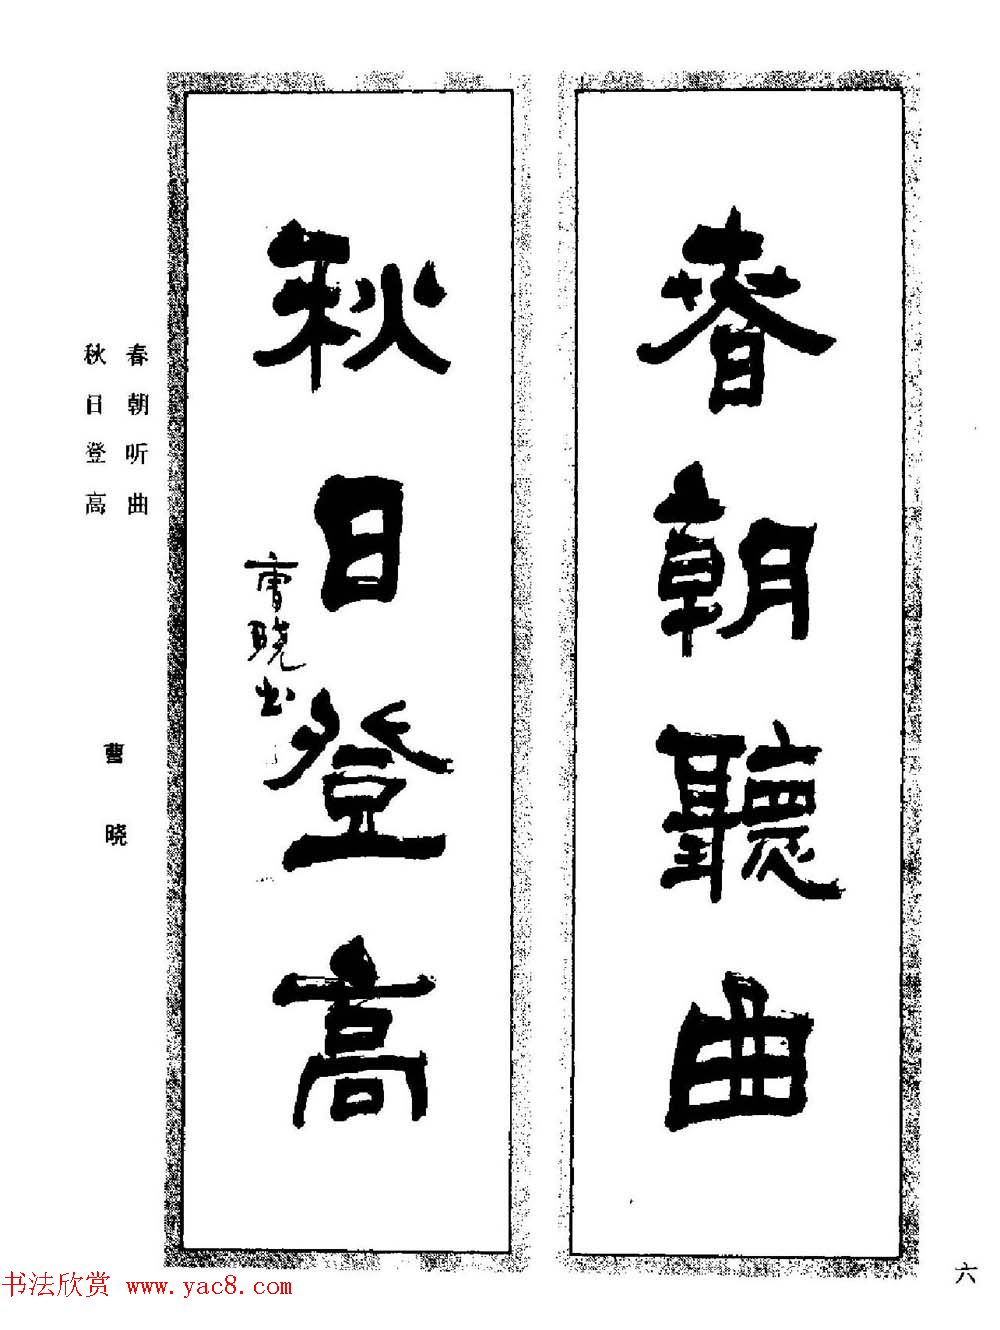 春朝聽曲
秋日登高
曹晓书
春朝听曲
秋日登高
曹晓
六
书法欣赏 www.yac8.com